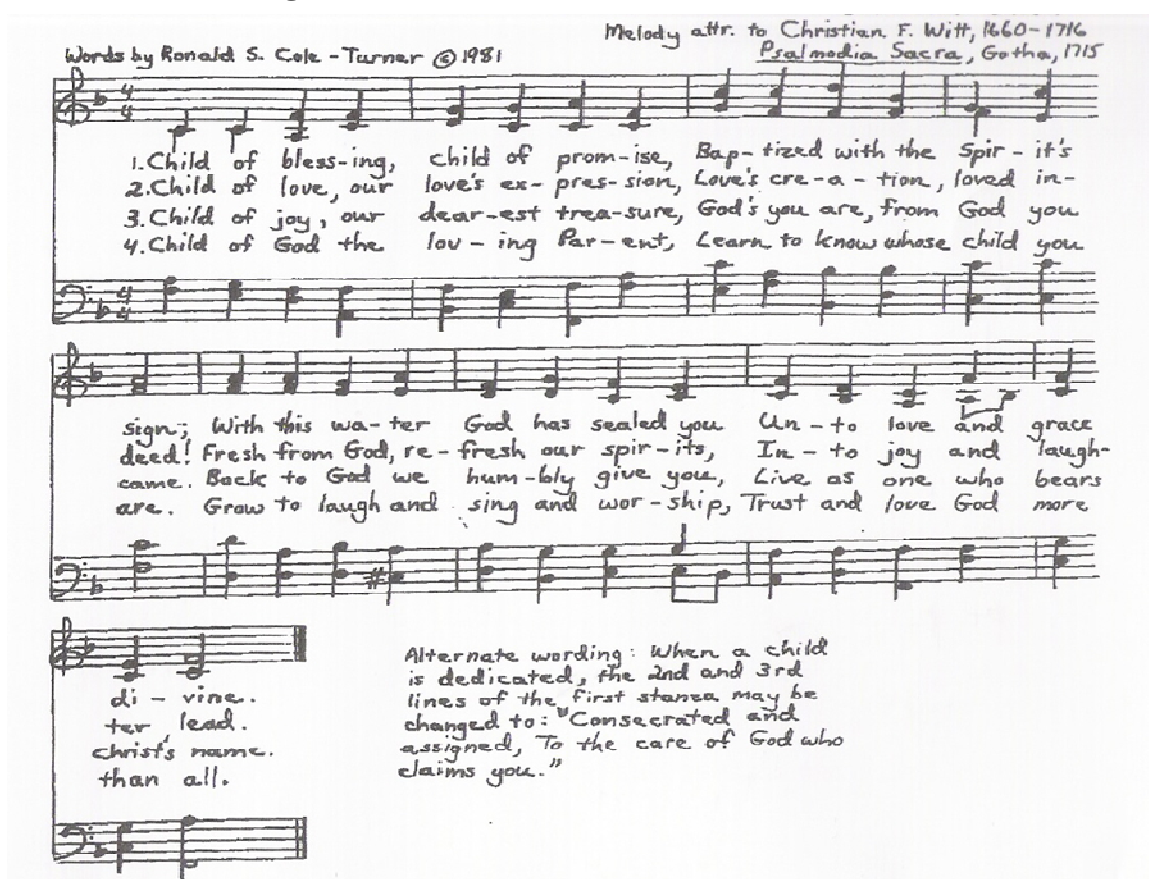 Melody attr. to Christian F. Witt, 1660-1716
Words by Ronald S. Cole-Turner © 1981
Psalmodia Sacra, Gotha, 1715
4
4
1. Child of bless-ing, child of prom-ise, Bap-tized with the Spir-it's
2. Child of love, our love's ex-pres-sion, Love's cre-a-tion, loved in-
3. Child of joy, our dear-est trea-sure, God's you are, from God you
4. Child of God the lov-ing Par-ent, Learn to know whose child you
4
4
sign; With this wa-ter God has sealed you Un-to love and grace
deed! Fresh from God, re-fresh our spir-its, In-to joy and laugh-
came. Back to God we hum-bly give you, Live as one who bears
are. Grow to laugh and sing and wor-ship, Trust and love God more
di-vine.
ter lead.
Christ's name.
than all.
Alternate wording: When a child
is dedicated, the 2nd and 3rd
lines of the first stanza may be
changed to: "Consecrated and
assigned, To the care of God who
claims you."